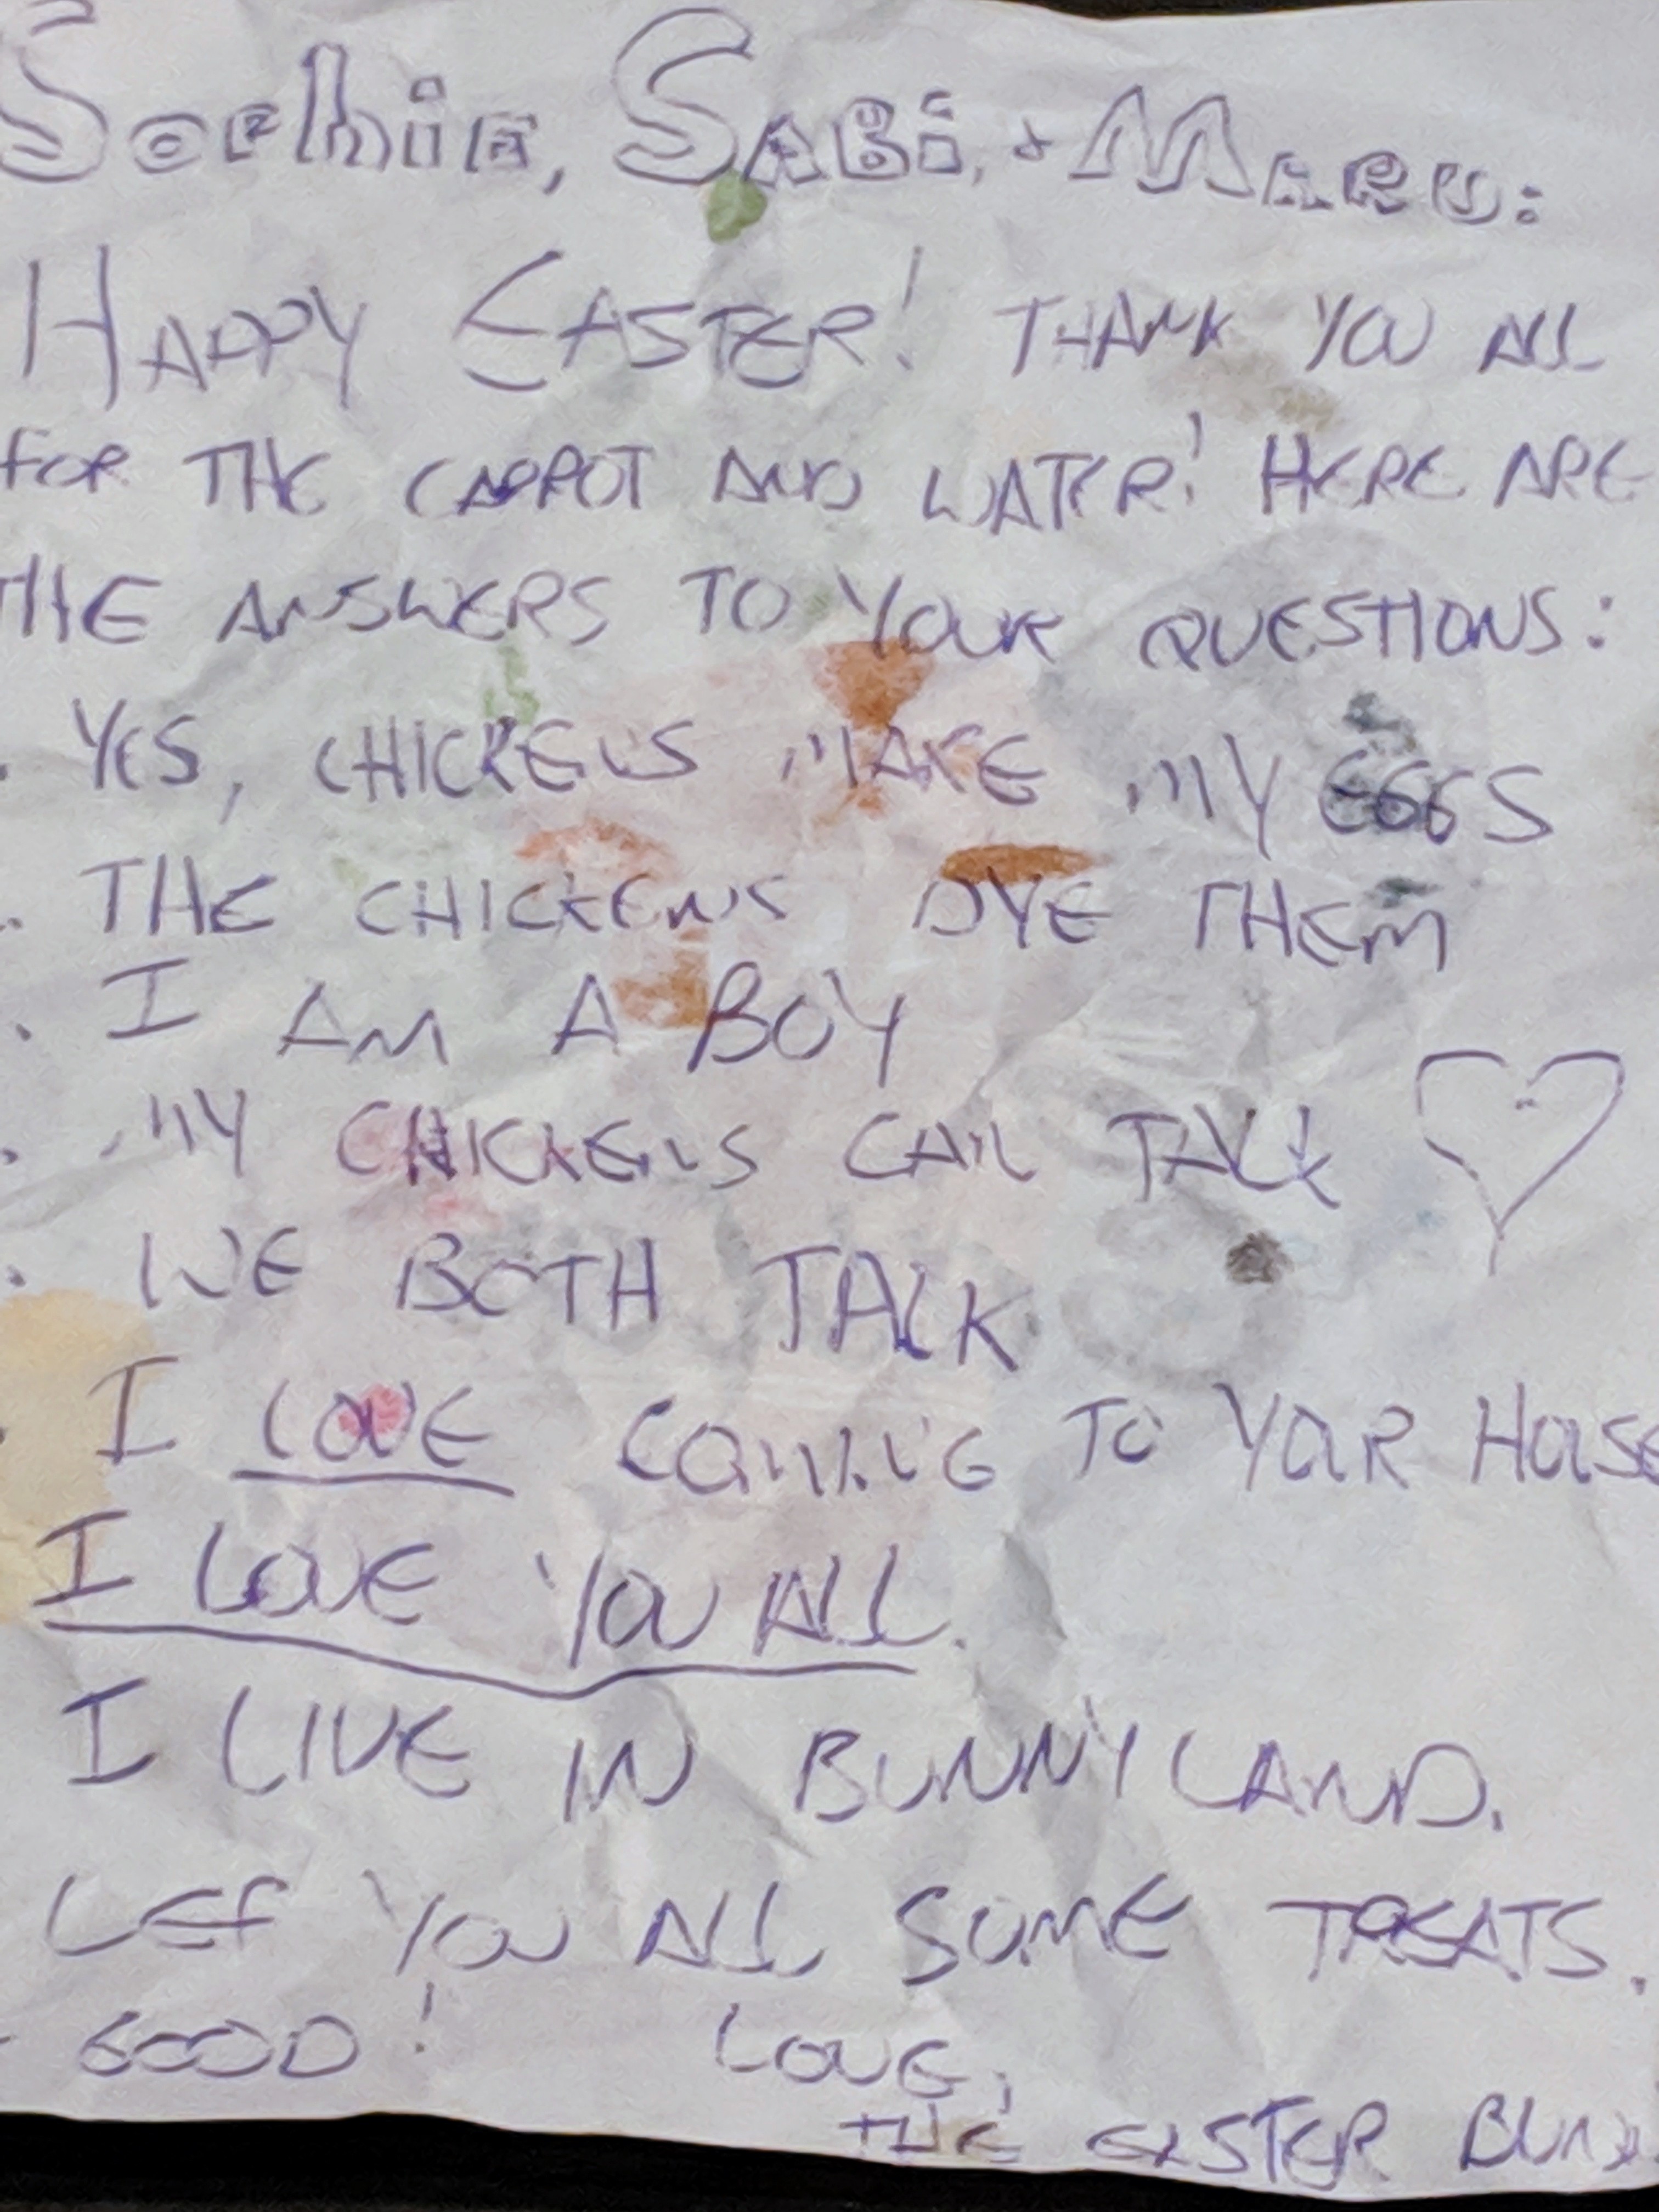 Sophia, Sabi, + Maru:
HAPPY EASTER! THANK YOU ALL
FOR THE CARROT AND WATER! HERE ARE
THE ANSWERS TO YOUR QUESTIONS:
. YES, CHICKENS MAKE MY EGGS
. THE CHICKENS DYE THEM
. I AM A BOY
. MY CHICKENS CAN TALK
. WE BOTH TALK
. I LOVE COMING TO YOUR HOUSE
I LOVE YOU ALL.
I LIVE IN BUNNYLAND.
LEF YOU ALL SOME TREATS.
GOOD! LOVE,
THE EASTER BUNN